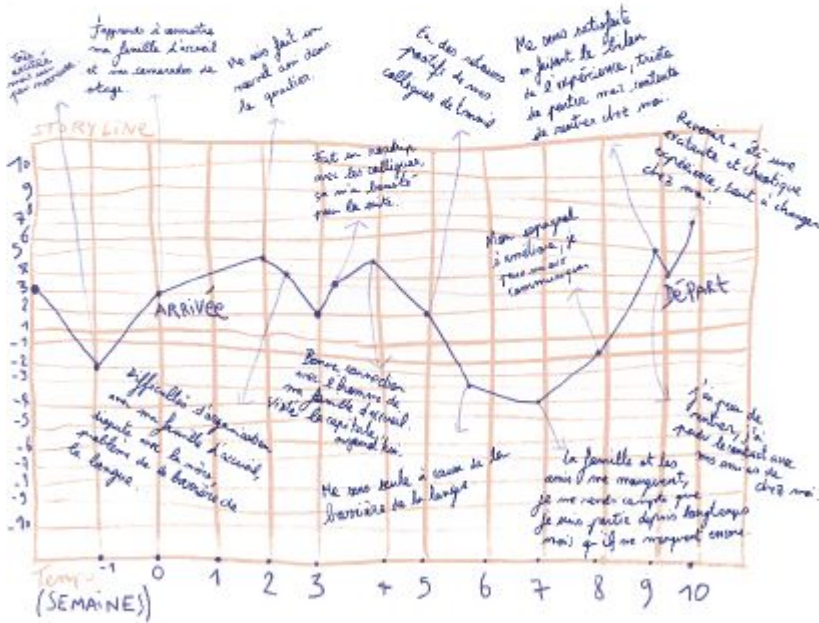 Très
excitée
mais un
peu nerveuse
J'apprends à connaître
ma famille d'accueil
et mes camarades de
stage.
Me suis fait un
nouvel ami dans
le quartier.
Eu des retours
positifs de mes
collègues de travail
Me sens satisfaite
en faisant le bilan
de l'expérience, triste
de partir mais contente
de rentrer chez moi.
STORYLINE
Fait un roadtrip
avec les collègues,
ça m'a boosté
pour la suite.
Revenir a été une
excitante et chaotique
expérience, tout a changé
chez moi.
Mon espagnol
s'améliore, je
peux mieux
communiquer
10
9
7
6
5
3
2
1
-1
-2
-3
-4
-5
-6
-7
-9
-10
ARRIVÉE
DÉPART
Difficultés d'organisation
avec ma famille d'accueil,
dispute avec la mère,
problème de la barrière de
la langue.
Bonne connection
avec l'homme de
ma famille d'accueil.
Visite la capitale
aujourd'hui.
Me sens seule à cause de la
barrière de la langue.
La famille et les
amis me manquent,
je me rends compte que
je suis partie depuis longtemps
mais qu'ils me manquent encore.
j'ai peur de
rentrer, j'ai
perdu le contact avec
mes amies de
chez moi.
Temps
(SEMAINES)
-1 0 1 2 3 4 5 6 7 8 9 10